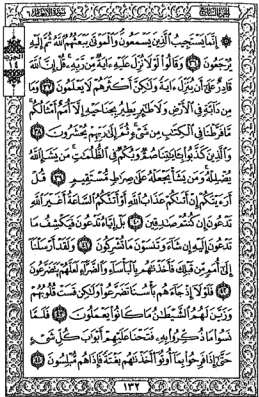 سورة الأنعام الجزء السابع
إنما يستجيب الذين يسمعون والموتى يبعثهم الله ثم إليه
يرجعون ٣٦ وقالوا لولا نزل عليه ءاية من ربه قل إن الله
قادر على أن ينزل ءاية ولكن أكثرهم لا يعلمون ٣٧ وما
من دابة في الأرض ولا طائر يطير بجناحيه إلا أمم أمثالكم
ما فرطنا في الكتب من شيء ثم إلى ربهم يحشرون ٣٨
والذين كذبوا بءايتنا صم وبكم في الظلمت من يشإ الله
يضلله ومن يشأ يجعله على صرط مستقيم ٣٩ قل
أرءيتكم إن أتىكم عذاب الله أو أتتكم الساعة أغير الله
تدعون إن كنتم صدقين ٤٠ بل إياه تدعون فيكشف ما
تدعون إليه إن شاء وتنسون ما تشركون ٤١ ولقد أرسلنا
إلى أمم من قبلك فأخذنهم بالبأساء والضراء لعلهم يتضرعون
٤٢ فلولا إذ جاءهم بأسنا تضرعوا ولكن قست قلوبهم
وزين لهم الشيطن ما كانوا يعملون ٤٣ فلما
نسوا ما ذكروا به فتحنا عليهم أبوب كل شيء
حتى إذا فرحوا بما أوتوا أخذنهم بغتة فإذا هم مبلسون ٤٤
١٣٢